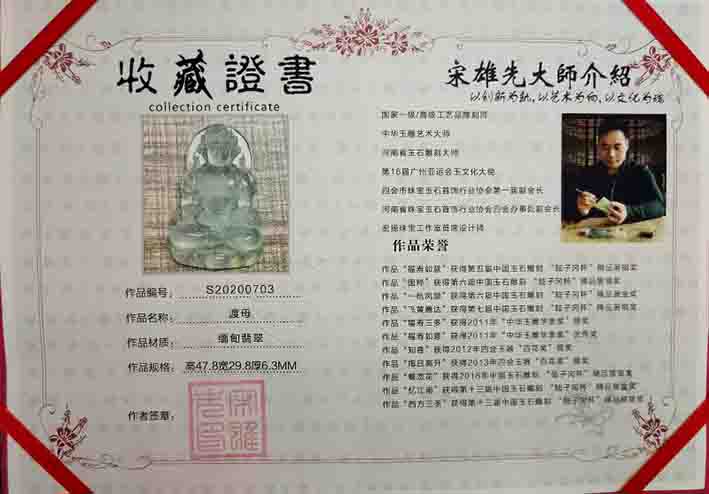 收藏證書
collection certificate
作品编号： S20200703
作品名称： 渡母
作品材质： 缅甸翡翠
作品规格： 高47.8宽29.8厚6.3MM
作者签章：
宋雄先大師介紹
以创新为轨，以艺术为向，以文化为魂
国家一级/高级工艺品雕刻师
中华玉雕艺术大师
河南省玉石雕刻大师
第16届广州亚运会玉文化大使
四会市珠宝玉石首饰行业协会第一届副会长
河南省珠宝玉石首饰行业协会四会办事处副会长
宏振珠宝工作室首席设计师
作品荣誉
作品“福寿如意”获得第五届中国玉石雕刻“陆子冈杯”精品
作品 获得第六届中国玉石雕刻“陆子冈杯”精品
作品 获得第六届中国玉石雕刻“陆子冈杯”精品
作品“飞黄腾达”获得第七届中国玉石雕刻“陆子冈杯”精品
作品“福寿三多”获得2011年“中华玉雕华表奖”
作品“福寿如意”获得2011年“中华玉雕华表奖”
作品 获得2012年四会玉器“百花奖”
作品 获得2013年四会玉器“百花奖”
作品 获得2016年中国玉石雕刻“陆子冈杯”
作品“忆江南”获得第十三届中国玉石雕刻“陆子冈杯”精品
作品“西方三圣”获得第十三届中国玉石雕刻“陆子冈杯”精品